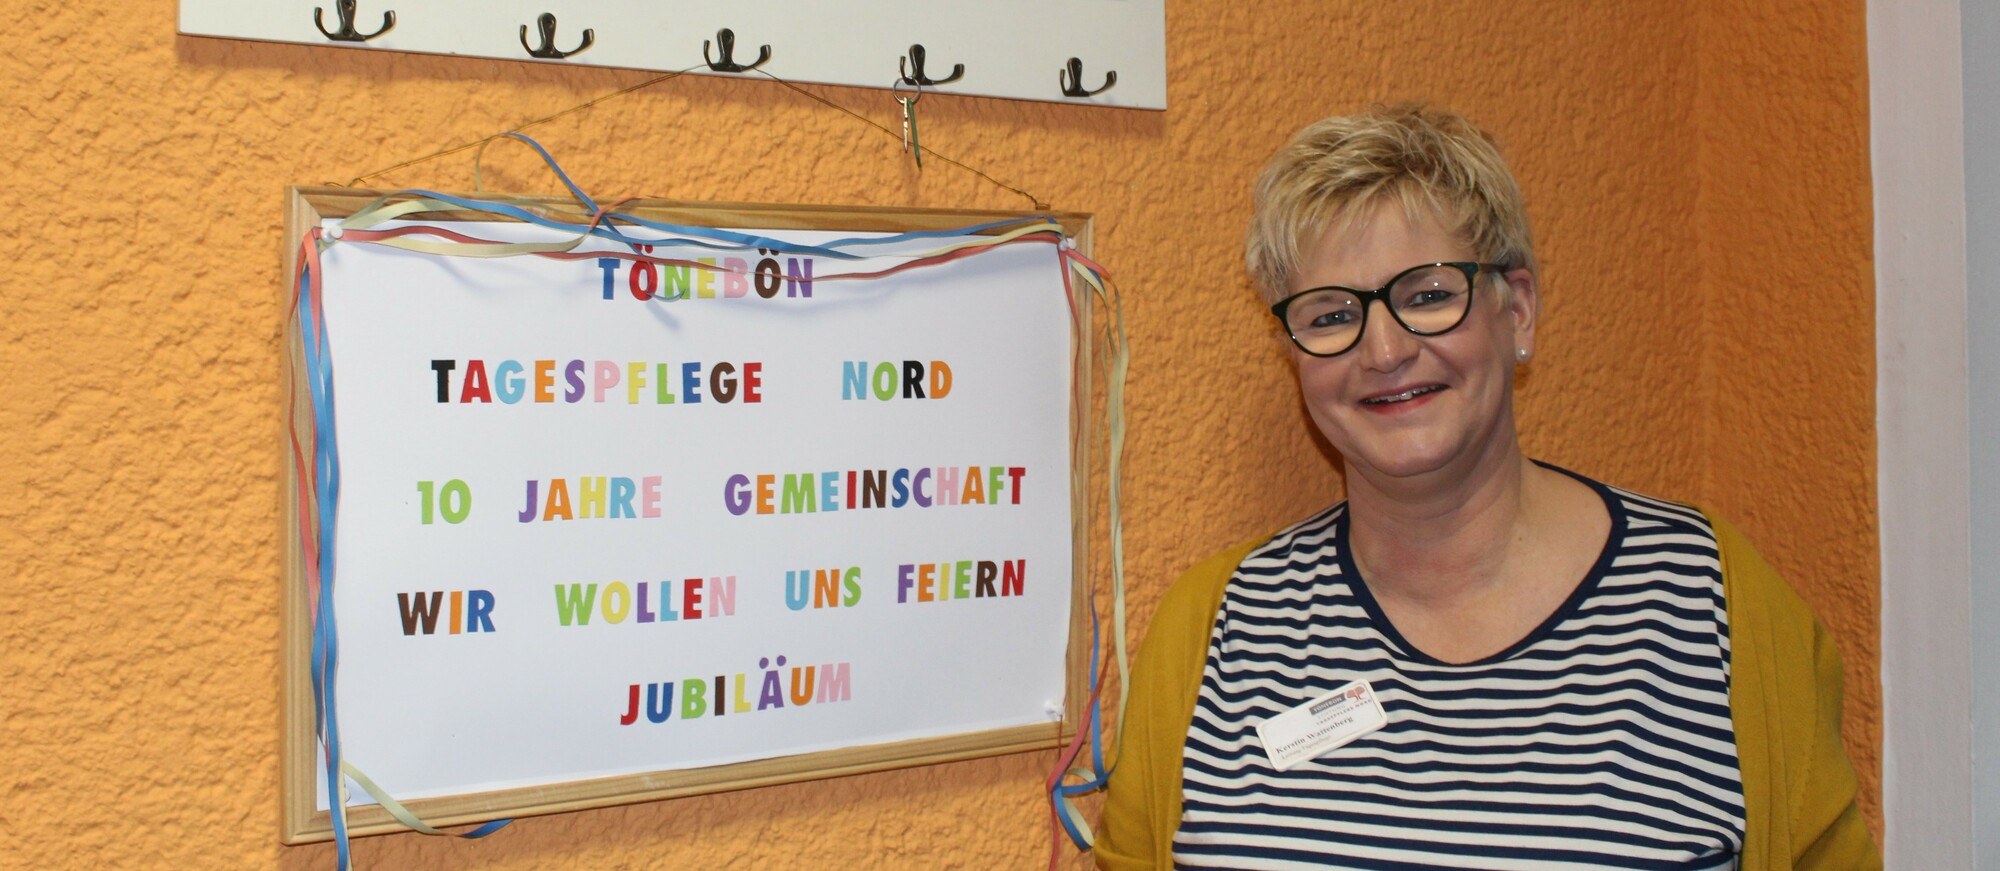 TÖNEBÖN
TAGESPFLEGE NORD
10 JAHRE GEMEINSCHAFT
WIR WOLLEN UNS FEIERN
JUBILÄUM
TÖNEBÖN
TAGESPFLEGE NORD
Kerstin Wattenberg